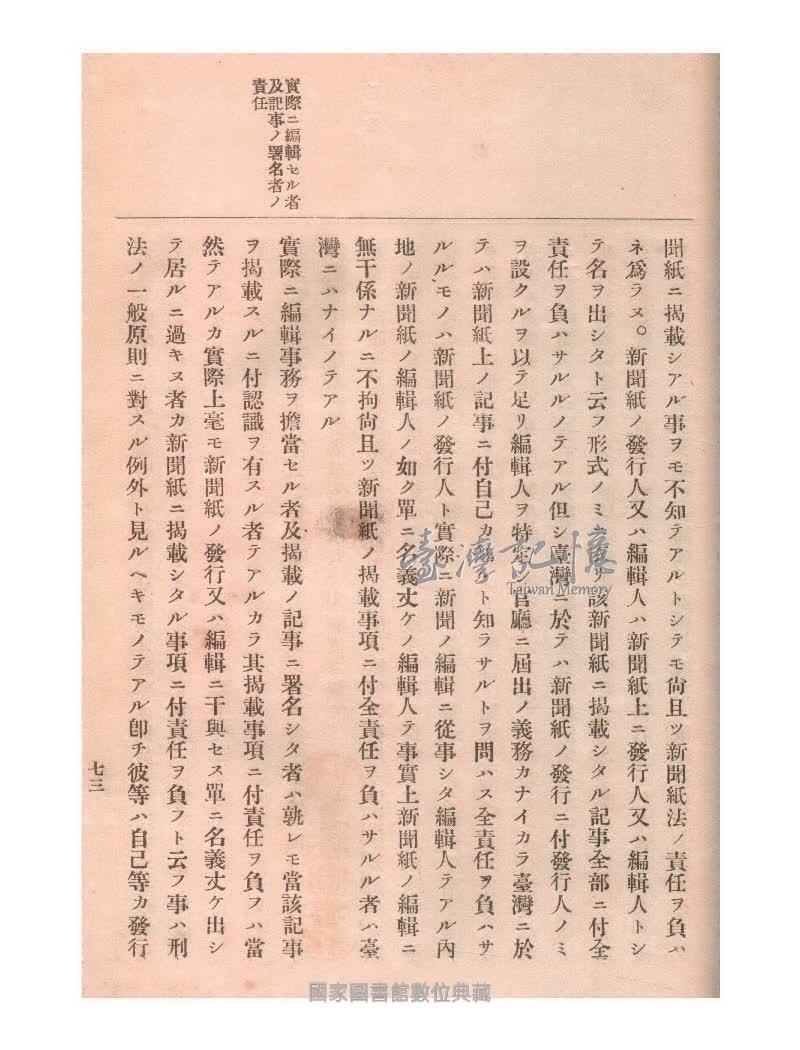 聞紙ニ揭載シアル事ヲモ不知テアルトシテモ尙且ツ新聞紙法ノ責任ヲ負ハ
ネ爲ラヌ。新聞紙ノ發行人又ハ編輯人ハ新聞紙上ニ發行人又ハ編輯人トシ
テ名ヲ出シタト云フ形式ノミ
該新聞紙ニ揭載シタル記事全部ニ付全
責任ヲ負ハサルルノテアル但シ臺灣ニ於テハ新聞紙ノ發行ニ付發行人ノミ
ヲ設クルヲ以テ足リ編輯人ヲ特定シ官廳ニ屆出ノ義務カナイカラ臺灣ニ於
テハ新聞紙上ノ記事ニ付自己カ
ト知ラサルトヲ問ハス全責任ヲ負ハサ
ルル、モノハ新聞紙ノ發行人ト實際ニ新聞ノ編輯ニ從事シタ編輯人テアル內
地ノ新聞紙ノ編輯人ノ如ク單ニ名義丈ケノ編輯人テ事實上新聞紙ノ編輯ニ
無干係ナルニ不拘尙且ツ新聞紙ノ揭載事項ニ付全責任ヲ負ハサルル者ハ臺
灣ニハナイノテアル
實際ニ編輯セル者
及記事ノ署名者ノ
責任
實際ニ編輯事務ヲ擔當セル者及揭載ノ記事ニ署名シタ者ハ孰レモ當該記事
ヲ揭載スルニ付認識ヲ有スル者テアルカラ其揭載事項ニ付責任ヲ負フハ當
然テアルカ實際上毫モ新聞紙ノ發行又ハ編輯ニ干與セス單ニ名義丈ケ出シ
テ居ルニ過キヌ者カ新聞紙ニ揭載シタル事項ニ付責任ヲ負フト云フ事ハ刑
法ノ一般原則ニ對スル例外ト見ルヘキモノテアル卽チ彼等ハ自己等カ發行
七三
臺灣記憶
Taiwan Memory
國家圖書館數位典藏